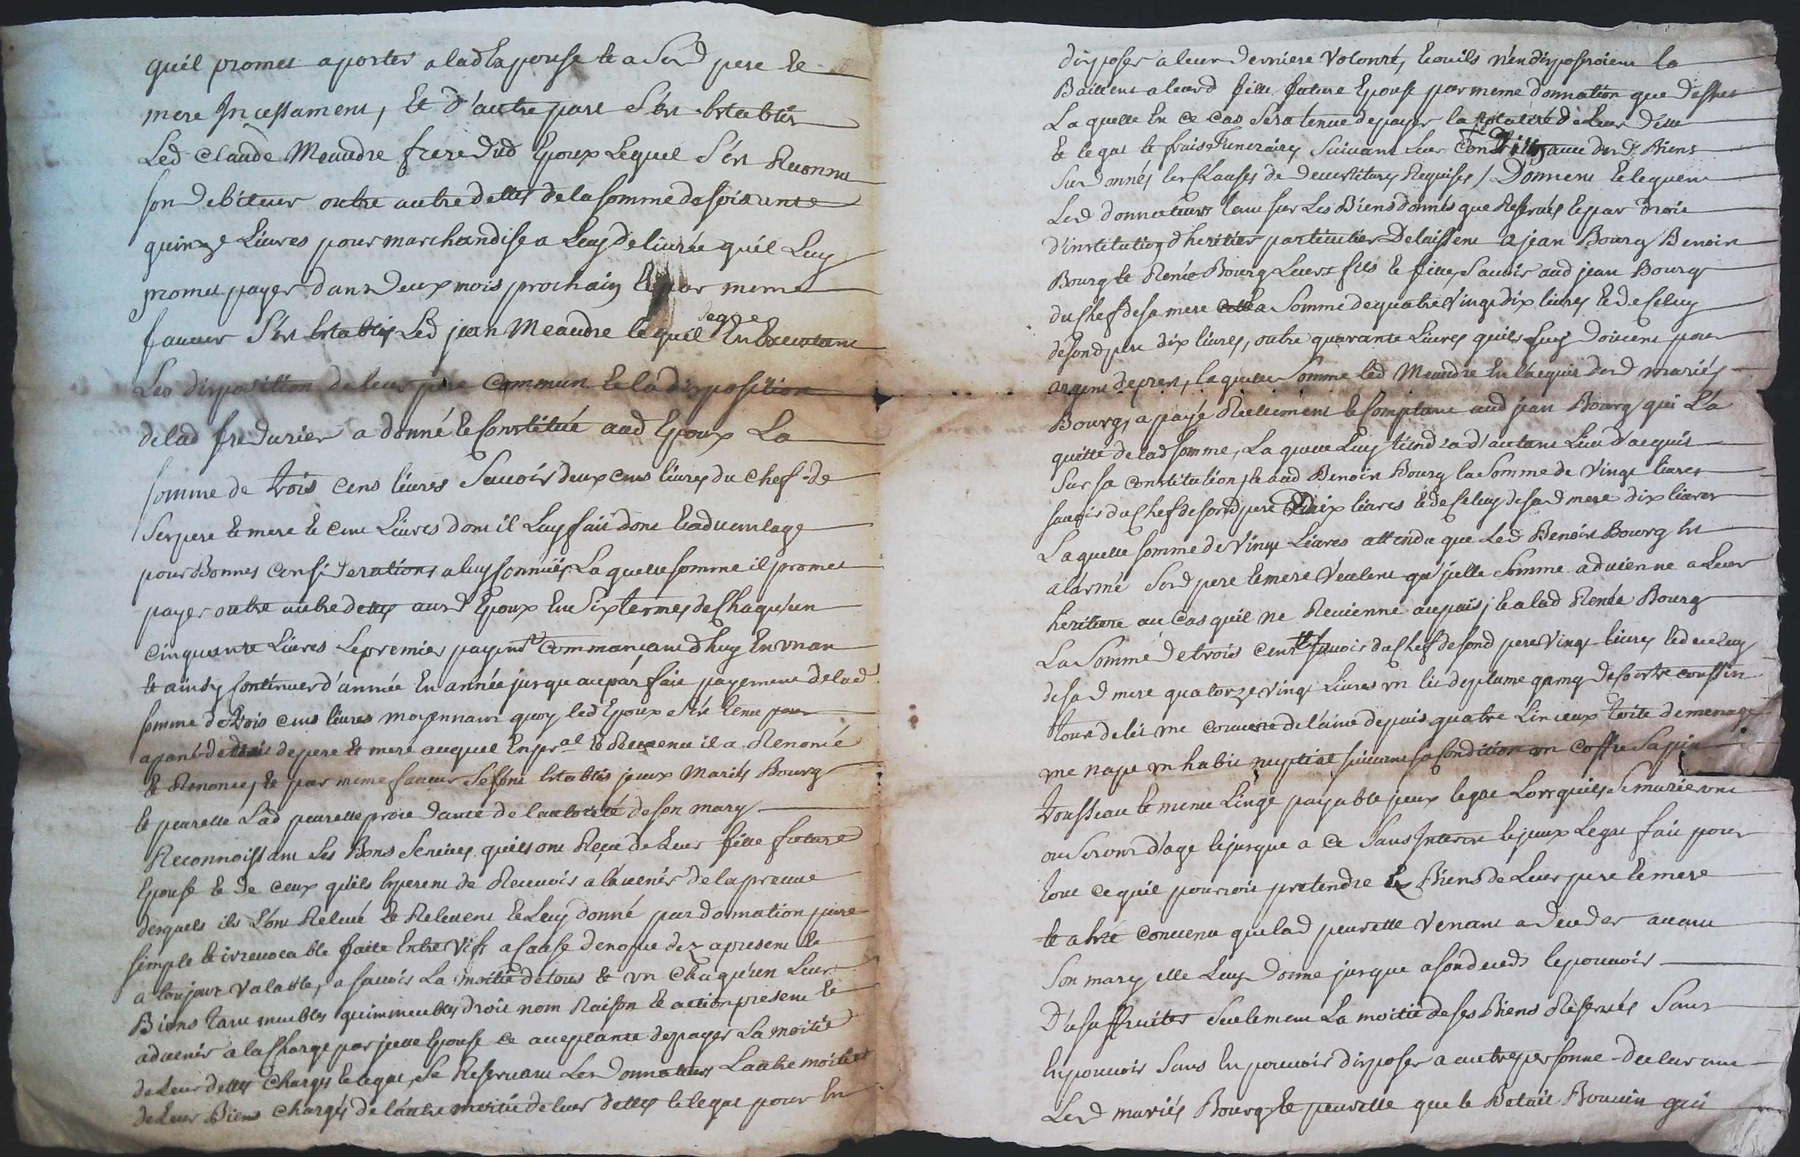 quil promet aporter a lad Epouse et a Sesd pere et
mere Incessament, et d'autre part S'est Establÿ
Led Claude Meaudre frere dud Epoux Lequel S'est Reconnu
son debiteur outre autre dettes de la somme de soixante
quinze Livres pour marchandise a Luy delivrée quil Luy
promet payer dans deux mois prochain Et par meme
faveur S'est Establÿ Led jean Meaudre lequel En Executant
Les disposition de leur pere commun et la disposition
de lad fredurier a donné et Constitué aud Epoux La
somme de trois cens livres Sauoir deux cens livres du chef de
Ses pere et mere et cent Livres dont il Luy fait don et aduentage
pour Bonnes considerations a luy connües Laquelle somme il promet
payer outre autre dettes aud Epoux En Six termes de Chaqu'un
cinquante Livres Le premier payemt Commançant d'huy En un an
et ainsy Continuer d'année En année jusqu au parfait payement de lad
somme de trois cens livres moyennant quoy led Epoux S'est tenu pour
apané de droits de pere et mere auquel En pral et Reuenu il a Renoncé
et Renonce, et par meme faueur Se sont Establis yceux Mariés Bourg
et peurette Lad peurette procedante de l'autorité de son mary
Reconnoissant les Bons Seruices quils ont Reçu de Leur fille future
Epouse et de ceux qu'ils Esperent de Receuoir a l'auenir de la preuue
desquels ils L'ont Releué et Releuent et Luy donné par donnation pure
simple et irreuocable faite Entre Vifs a Cause de nopce dez a present et
a toujour valable, a sauoir La moitié de tous et un Chaqu'un Leurs
Biens tant meubles qu'immeubles droit nom Raison et action present et
aduenir a la Charge par ycelle Epouse ce aceptante de payer La moitié
de Leur dettes Charges et legat, Se Reseruant Lesd Donnateurs L'autre moitié
de Leur Biens Chargés de l'autre moitié de leur dettes et legat pour En
disposer a leur derniere Volonté, et ou ils n'en disposeroient la
Baillent a leurd fille future Epouse par meme donnation que dessus
La quelle En ce cas Sera tenue de payer la totalité de Leur dette
et legat et frais Funeraires Suiuant leur Condition auec desd Biens
Sus donnés les Clauses de deuestitures Requises / Donnent et leguent
Lesd donnateurs tant sur Les Biens donnés que Reserués et par droit
d'institution d'heritier particulier Delaissent a jean Bourg Benoit
Bourg et Renée Bourg Leurs fils et fille, Sauoir aud jean Bourg
du Chef de sa mere la Somme de quatre Vingt dix livres et de Celuy
de sond pere dix livres, outre quarante Livres quils Luy doiuent pour
argent de prest, laquelle Somme led Meaudre En l'acquit desd mariés
Bourg, a payé Reellement et Comptant aud jean Bourg qui L'a
quitté de lad somme, La quelle Luy tiendra d'autant Lieu d'acquit
Sur sa constitution, et aud Benoit Bourg la Somme de Vingt livres
sauoir du Chef de sond pere Dix livres et de Celuy de sad mere dix livres
Laquelle somme de Vingt Livres attendu que Led Benoit Bourg Est
a l'armé Sesd pere et mere Veulent qu'ycelle Somme aduienne a leur
heritiere au Cas quil ne Reuienne au païs, et a lad Renée Bourg
La Somme de trois Cens Sauoir du Chef de sond pere Vingt livres et de celuy
de sad mere quatorze Vingt Livres un lit de plume garny de Coutre coussin
tour de lit une couuerte de laine de païs quatre Linceux toile de menage
une nape un habit nuptial suiuant sa Condition un Coffre Sapin
trousseau et menu Linge payable yceux legat Lors quils Se marieront
ou Seront d'age et jusque a ce Sans Interest et yceux Legat fait pour
tout ce quil pourroit pretendre Es Biens de Leur pere et mere
et a Esté conuenu que lad peurette Venant a deceder auant
Son mary elle Luy donne jusque a son deceds le pouuoir
D'usufruiter Seulement La moitié de ses Biens Reserués Sans
En pouuoir disposer a autre personne declarant
Lesd mariés Bourg et peurette que le Betail Bouuin qui